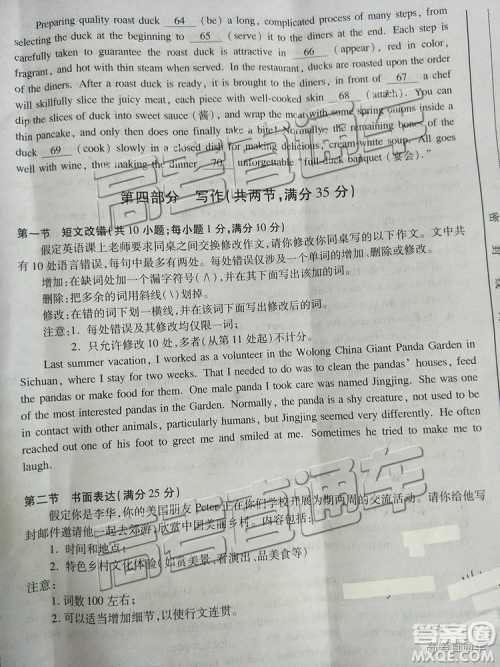 Preparing quality roast duck 64 (be) a long, complicated process of many steps, from
selecting the duck at the beginning to 65 (serve) it to the diners at the end. Each step is
carefully taken to guarantee the roast duck is attractive in 66 (appear), red in color,
fragrant, and hot with thin steam when served. In the restaurant, ducks are roasted upon the order
of the diners. After a roast duck is ready, it is brought to the diners, in front of 67 a chef
will skillfully slice the juicy meat, each piece with well-cooked skin 68 (attach). They can
dip the slices of duck into sweet sauce (酱), and wrap the meat with some spring onions inside a
thin pancake, and only then does one finally take a bite! Normally, the remaining bones of the
duck 69 (cook) slowly in a closed dish for making delicious "cream-white soup. All goes
well with wine, thus making the dinner 70 unforgettable "full duck banquet (宴会)."
第四部分 写作(共两节,满分 35 分)
第一节 短文改错(共 10 小题;每小题 1 分,满分 10 分)
假定英语课上老师要求同桌之间交换修改作文,请你修改你同桌写的以下作文。文中共
有 10 处语言错误,每句中最多有两处。每处错误仅涉及一个单词的增加、删除或修改。
增加:在缺词处加一个漏字符号(∧),并在其下面写出该加的词。
删除:把多余的词用斜线(\)划掉。
修改:在错的词下划一横线,并在该词下面写出修改后的词。
注意:1. 每处错误及其修改均仅限一词;
2. 只允许修改 10 处,多者(从第 11 处起)不计分。
Last summer vacation, I worked as a volunteer in the Wolong China Giant Panda Garden in
Sichuan, where I stay for two weeks. That I needed to do was to clean the pandas' houses, feed
the pandas or make food for them. One male panda I took care was named Jingjing. She was one
of the most interested pandas in the Garden. Normally, the panda is a shy creature, not used to be
in contact with other animals, particularly humans, but Jingjing seemed very differently. He often
reached out one of his foot to greet me and smiled at me. Sometimes he tried to make me to
laugh.
第二节 书面表达(满分 25 分)
假定你是李华,你的美国朋友 Peter 正在你们学校开展为期两周的交流活动。请你给他写
封邮件邀请他一起去郊游,欣赏中国美丽乡村。内容包括:
1. 时间和地点;
2. 特色乡村文化体验(如觅美景、看演出、品美食等)
注意:
1. 词数 100 左右;
2. 可以适当增加细节,以使行文连贯。
高考直通车
答案圈
MXQE.COM